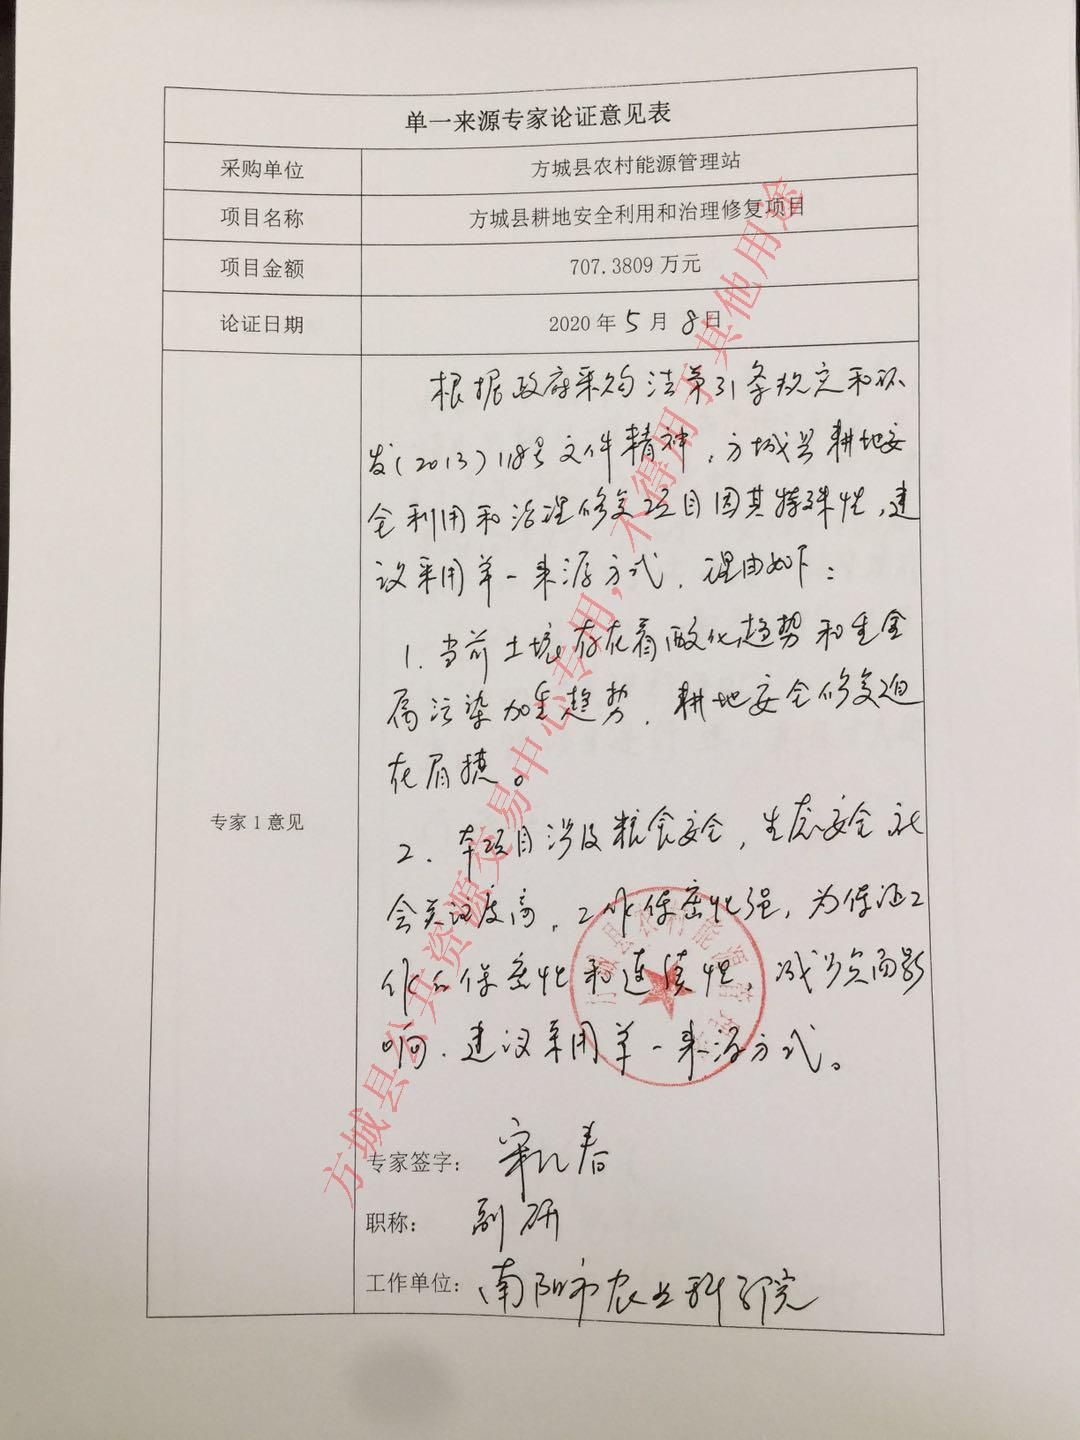 单一来源专家论证意见表
采购单位 方城县农村能源管理站
项目名称 方城县耕地安全利用和治理修复项目
项目金额 707.3809 万元
论证日期 2020 年 5 月 8 日
专家 1 意见
根据政府采购法第31条规定和环
发(2013)118号文件精神，方城县耕地安
全利用和治理修复项目因其特殊性，建
议采用单一来源方式，理由如下：
1. 当前土壤存在着酸化趋势和重金
属污染加重趋势，耕地安全修复迫
在眉睫。
2. 本项目涉及粮食安全，生态安全 社
会关注度高，工作保密性强，为保证工
作的保密性和连续性，减少负面影
响，建议采用单一来源方式。
专家签字： 春
职称： 副研
工作单位： 南阳市农业科学院
方城县公共资源交易中心专用，不得用于其他用途
方城县农村能源管理站